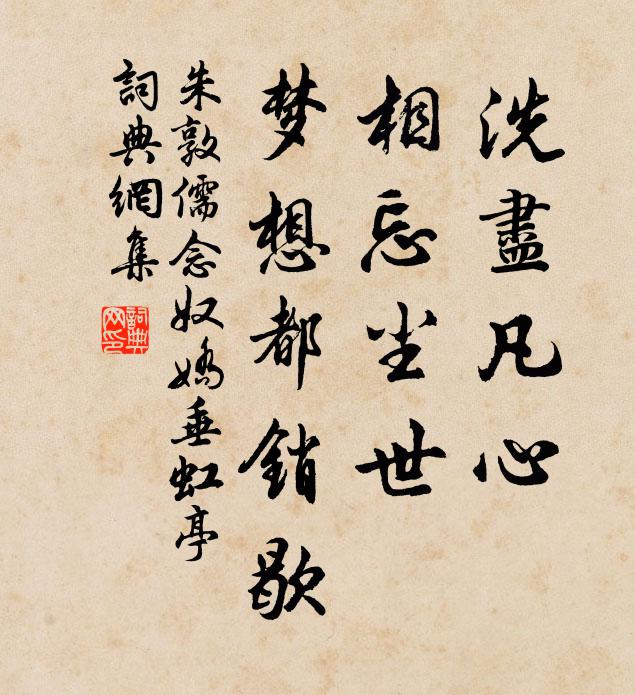 洗盡凡心
相忘尘世
梦想都銷歇
朱敦儒念奴嬌垂虹亭
詞典網集
詞典网印